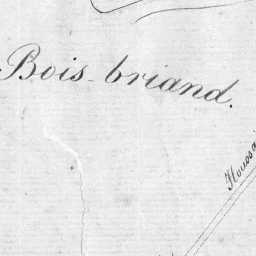 Bois-briand.
Houssa